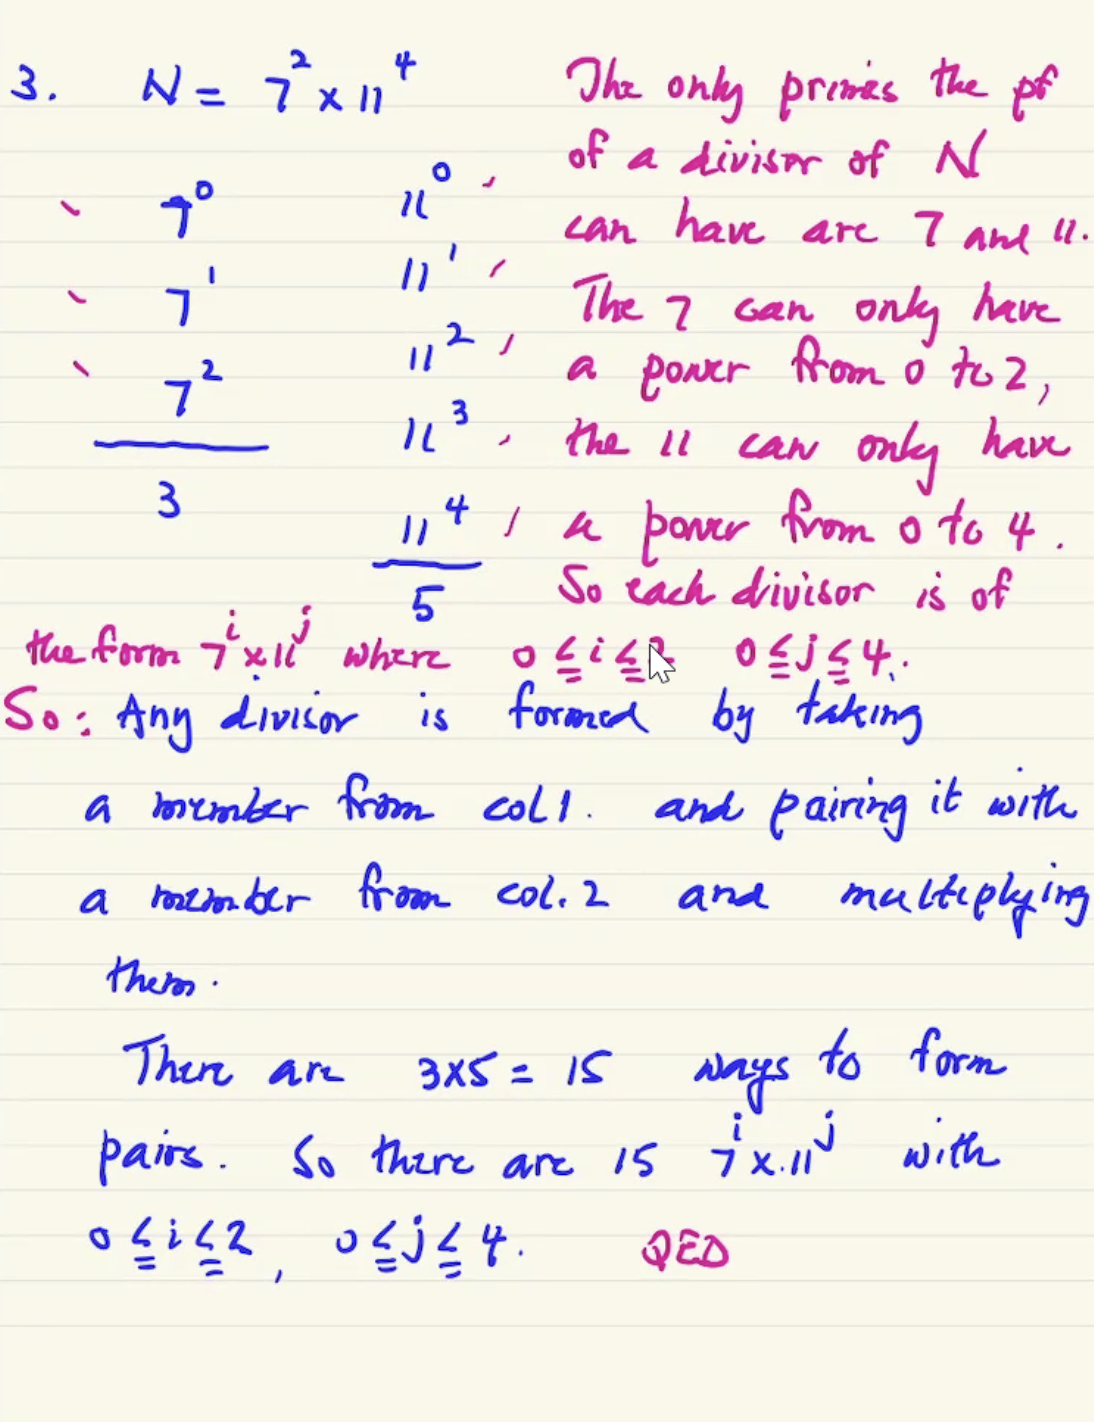 3. N = 7² × 11⁴
The only primes the pf
of a divisor of N
can have are 7 and 11.
The 7 can only have
a power from 0 to 2,
the 11 can only have
a power from 0 to 4.
So each divisor is of
7⁰
7¹
7²
3
11⁰
11¹
11²
11³
11⁴
5
the form 7ⁱ × 11ʲ where 0 ≦ i ≦ 2 0 ≦ j ≦ 4.
So: Any divisor is formed by taking
a member from col 1. and pairing it with
a member from col. 2 and multiplying
them.
There are 3×5 = 15 ways to form
pairs. So there are 15 7ⁱ × 11ʲ with
0 ≦ i ≦ 2, 0 ≦ j ≦ 4. QED